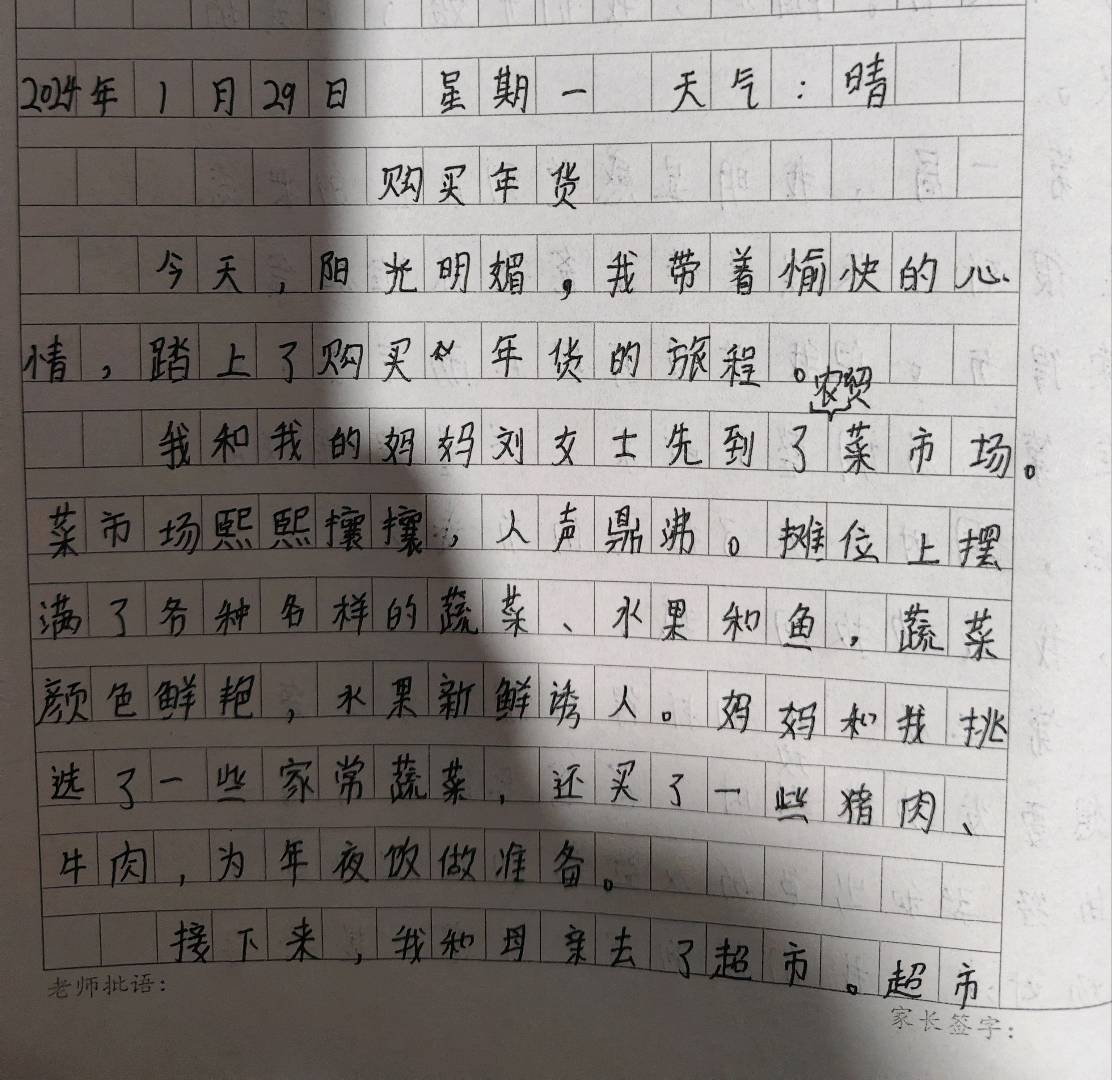 2024年1月29日 星期一 天气:晴
购买年货
今天,阳光明媚,我带着愉快的心
情,踏上了购买年货的旅程。
农贸
我和我的妈妈刘女士先到了菜市场。
菜市场熙熙攘攘,人声鼎沸。摊位上摆
满了各种各样的蔬菜、水果和鱼,蔬菜
颜色鲜艳,水果新鲜诱人。妈妈和我挑
选了一些家常蔬菜,还买了一些猪肉、
牛肉,为年夜饭做准备。
接下来,我和母亲去了超市。超市
老师批语:
家长签字: